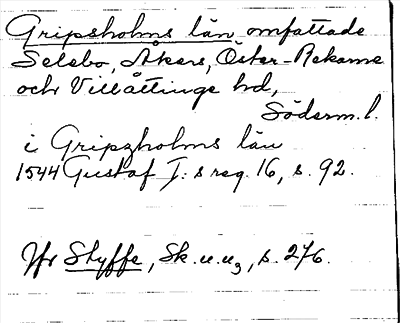 Gripsholms län omfattade
Selebo, Åkers, Öster-Rekarne
och Villåttinge hd,
Söderm.l.
i Gripzholms län
1544 Gustaf I:s reg. 16, s. 92.
Jfr Styffe, Sk.u.u3, s. 276.